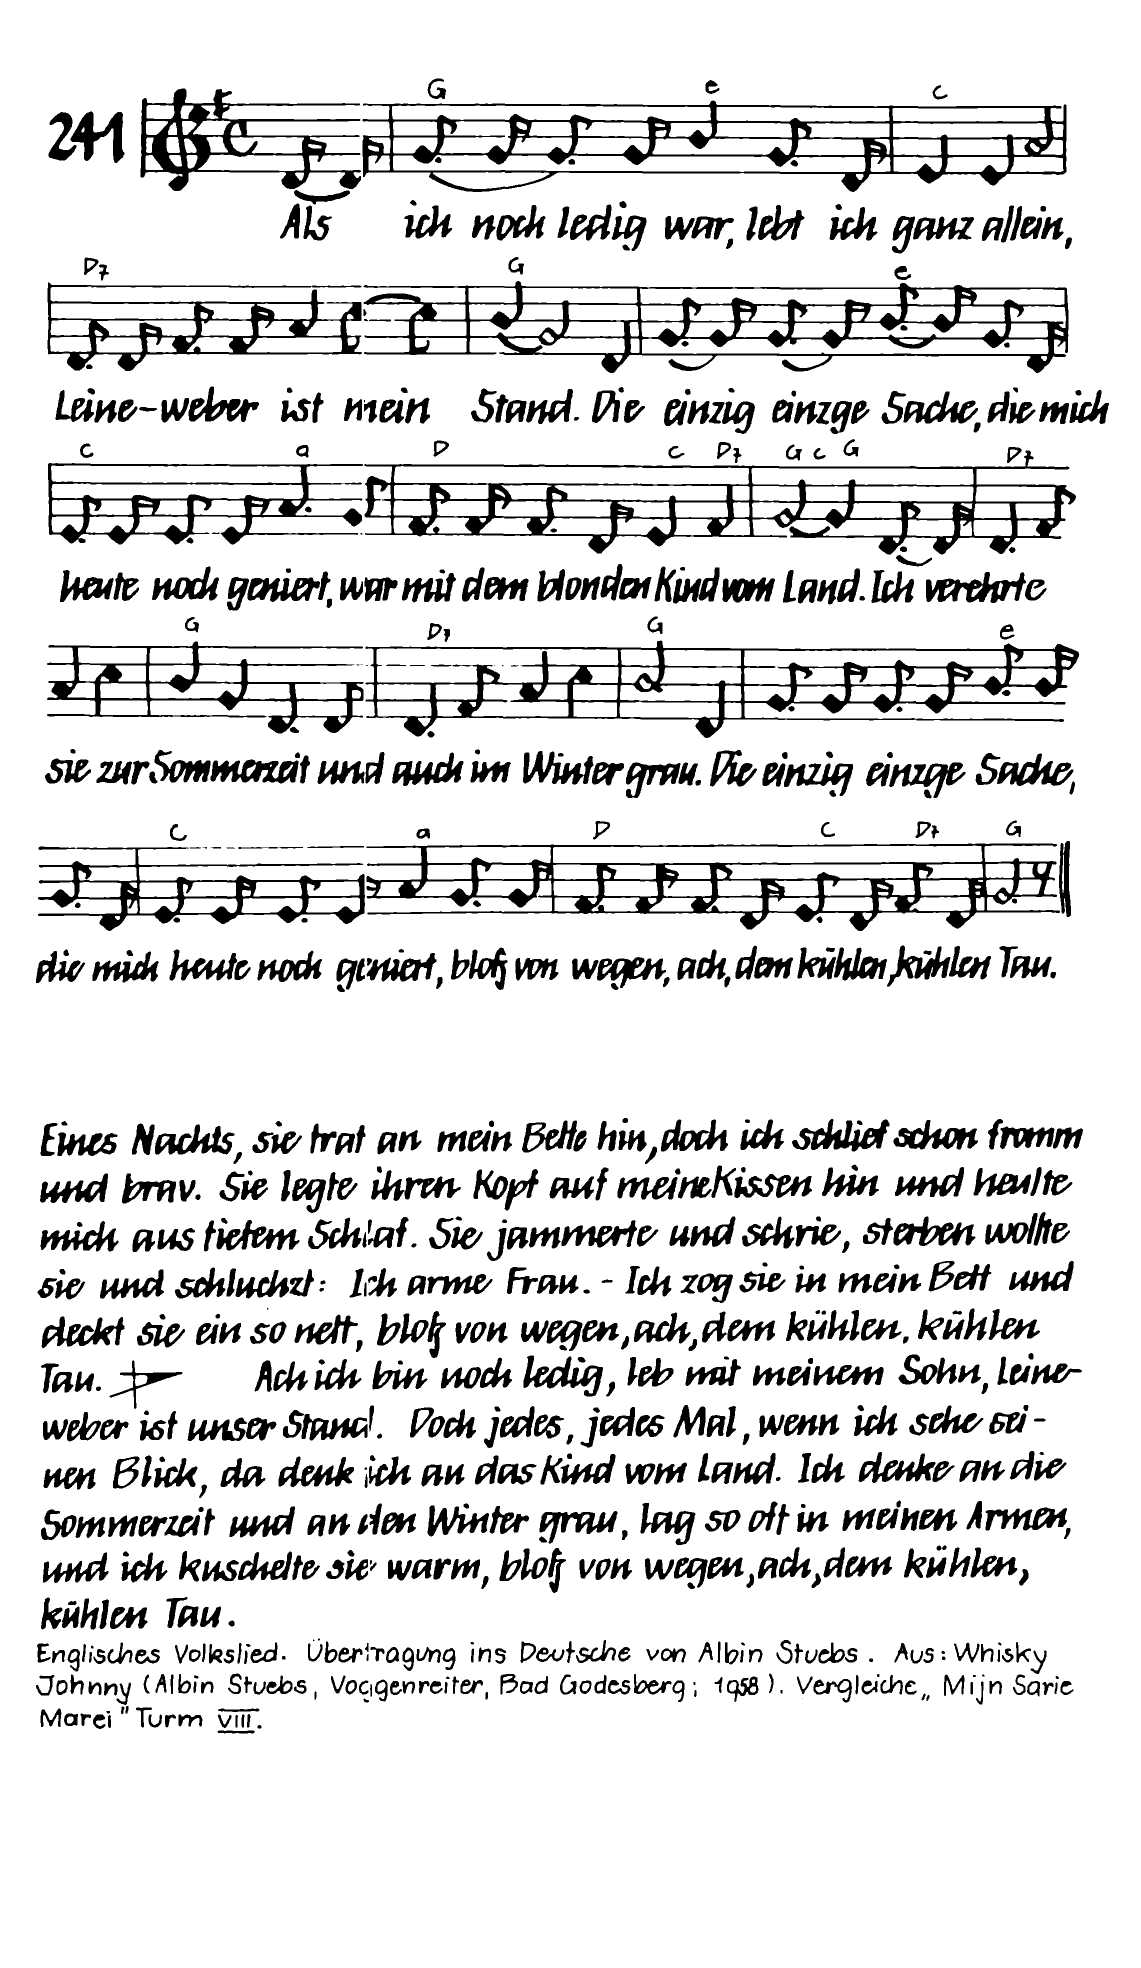 G e C
241
Als ich noch ledig war, lebt ich ganz allein,
D7 G e
Leine-weber ist mein Stand. Die einzig einzge Sache, die mich
C a D C D7 G C G D7
heute noch geniert, war mit dem blonden Kind vom Land. Ich verehrte
G D7 G e
sie zur Sommerzeit und auch im Winter grau. Die einzig einzge Sache,
C a D C D7 G
die mich heute noch geniert, bloß von wegen, ach, dem kühlen, kühlen Tau.
Eines Nachts, sie trat an mein Bette hin, doch ich schlief schon fromm
und brav. Sie legte ihren Kopf auf meine Kissen hin und heulte
mich aus tiefem Schlaf. Sie jammerte und schrie, sterben wollte
sie und schluchzt: Ich arme Frau. - Ich zog sie in mein Bett und
deckt sie ein so nett, bloß von wegen, ach, dem kühlen, kühlen
Tau. Ach ich bin noch ledig, leb mit meinem Sohn, Leine-
weber ist unser Stand. Doch jedes, jedes Mal, wenn ich sehe sei-
nen Blick, da denk ich an das Kind vom Land. Ich denke an die
Sommerzeit und an den Winter grau, lag so oft in meinen Armen,
und ich kuschelte sie warm, bloß von wegen, ach, dem kühlen,
kühlen Tau.
Englisches Volkslied. Übertragung ins Deutsche von Albin Stuebs. Aus: Whisky
Johnny (Albin Stuebs, Voggenreiter, Bad Godesberg; 1958). Vergleiche „Mijn Sarie
Marei" Turm VIII.